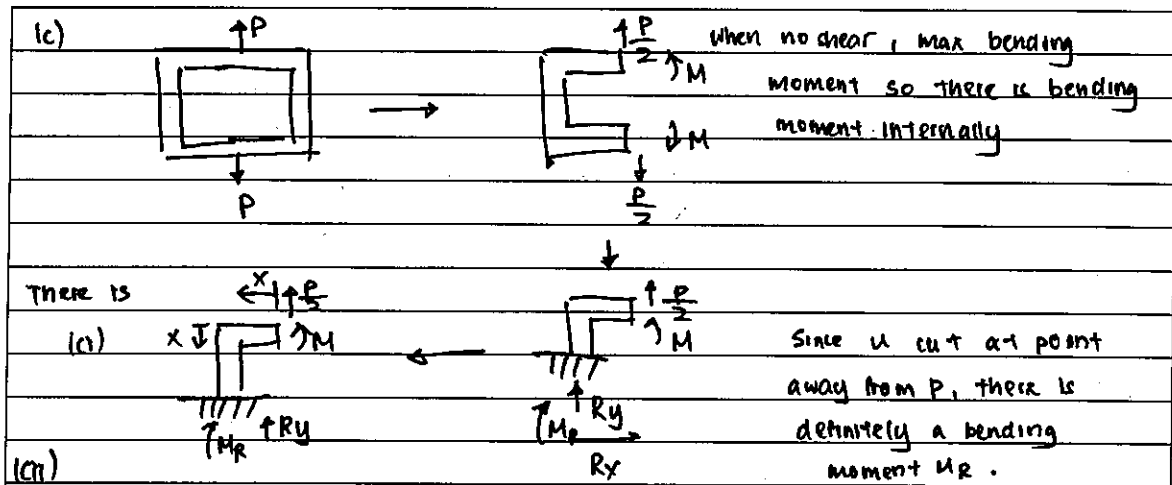 (c)
↑P
P
↑ P/2
↑M
↓M
P/2
when no shear, max bending
moment so there is bending
moment internally
There is
(ci)
x
↑ P/2
x ↓
M
M_R ↑Ry
↑ P/2
M
Ry
Rx
Since u cut at point
away from P, there is
definitely a bending
moment M_R.
(cii)